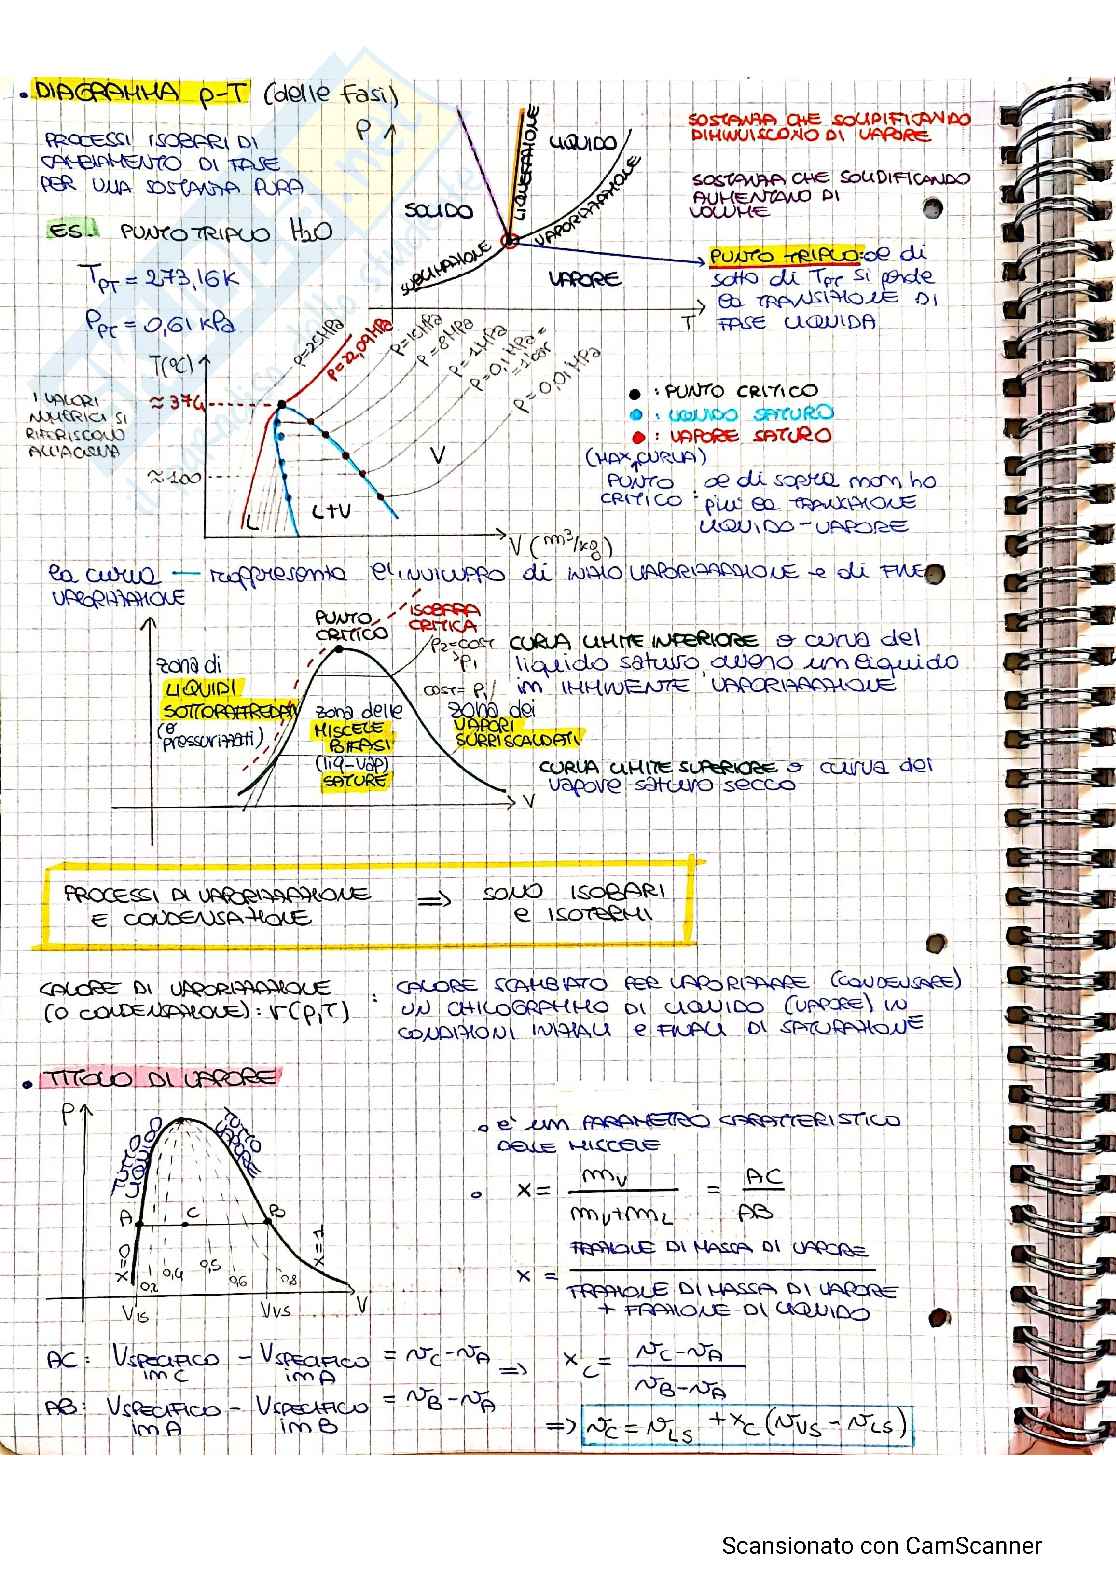 • DIAGRAMMA p-T (delle fasi)
PROCESSI ISOBARI DI
CAMBIAMENTO DI FASE
PER UNA SOSTANZA PURA
ES. PUNTO TRIPLO H2O
TPT = 273,16K
PPT = 0,61 kPa
P
SOLIDO
LIQUEFAZIONE
LIQUIDO
VAPORIZZAZIONE
SUBLIMAZIONE
VAPORE
T
SOSTANZA CHE SOLIDIFICANDO
DIMINUISCONO DI VAPORE
SOSTANZA CHE SOLIDIFICANDO
AUMENTANO DI
VOLUME
PUNTO TRIPLO: al di
sotto di TPT si perde
la TRANSIZIONE DI
FASE LIQUIDA
T(°C)
I VALORI
NUMERICI SI
RIFERISCONO
ALL'ACQUA
≈ 374
≈ 100
P=25MPa
P=22,09MPa
P=15MPa
P=8MPa
P=1MPa
P=0,1MPa =
= 1bar
P=0,01MPa
L
L+V
V
V (m³/kg)
• : PUNTO CRITICO
• : LIQUIDO SATURO
• : VAPORE SATURO
(MAX CURVA)
PUNTO CRITICO : al di sopra non ho
più la TRANSIZIONE
LIQUIDO-VAPORE
la curva — rappresenta l'INVILUPPO di INIZIO VAPORIZZAZIONE e di FINE
VAPORIZZAZIONE
PUNTO
CRITICO
ISOBARA
CRITICA
P2=cost
>P1
cost= P1
zona di
LIQUIDI
SOTTORAFFREDATI
(o
pressurizzati)
zona delle
MISCELE
BIFASI
(liq-vap)
SATURE
zona dei
VAPORI
SURRISCALDATI
V
CURVA LIMITE INFERIORE o curva del
liquido saturo, ovvero un liquido
in IMMINENTE VAPORIZZAZIONE
CURVA LIMITE SUPERIORE o curva del
vapore saturo secco
PROCESSI DI VAPORIZZAZIONE
E CONDENSAZIONE
⇒ SONO ISOBARI
e ISOTERMI
CALORE DI VAPORIZZAZIONE
(O CONDENSAZIONE): r(p,T) :
CALORE SCAMBIATO PER VAPORIZZARE (CONDENSARE)
UN CHILOGRAMMO DI LIQUIDO (VAPORE) IN
CONDIZIONI INIZIALI e FINALI DI SATURAZIONE
• TITOLO DI VAPORE
P
TUTTO
LIQUIDO
TUTTO
VAPORE
A
C
B
x=0
0,2
0,4
0,5
0,6
0,8
x=1
VLS
VVS
V
• è un PARAMETRO CARATTERISTICO
DELLE MISCELE
• x = mV / (mV+mL) = AC / AB
x = FRAZIONE DI MASSA DI VAPORE
FRAZIONE DI MASSA DI VAPORE
+ FRAZIONE DI LIQUIDO
AC: VSPECIFICO in C - VSPECIFICO in A = vC-vA ⇒ xC = (vC-vA) / (vB-vA)
AB: VSPECIFICO in A - VSPECIFICO in B = vB-vA
⇒ vC = vLS + xC (vVS - vLS)
Scansionato con CamScanner